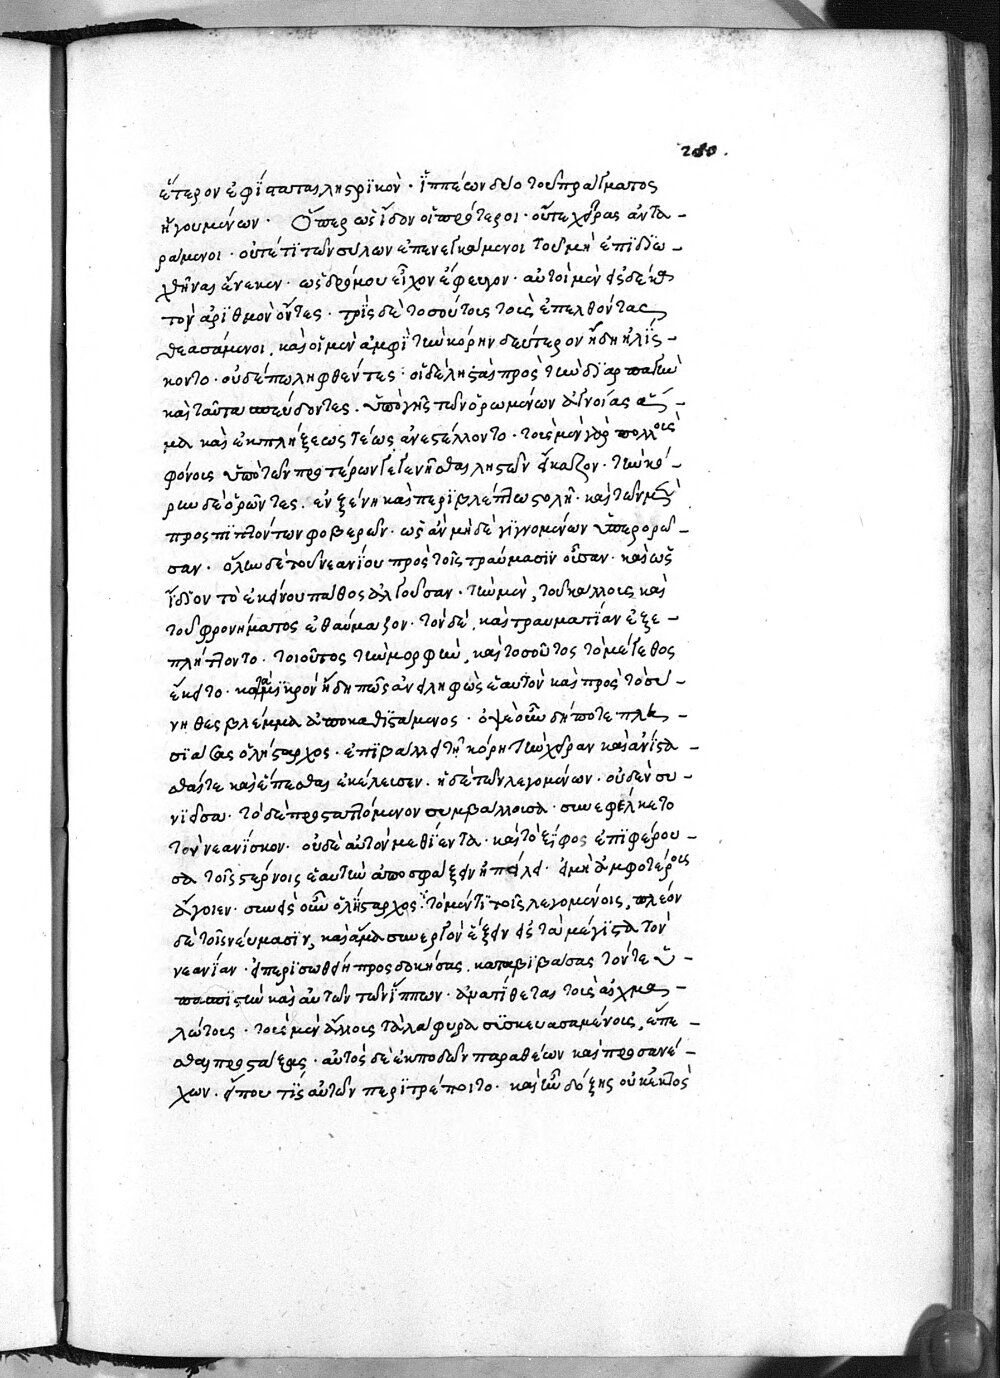 280.
ἕτερον ἐφίσταται ληστρικὸν · ἵππέων δύο τοῦ πράγματος
ἡγουμένων · Ὅπερ ὡς ἶδον οἱ πρότεροι · οὔτε χεῖρας ἀντα -
ράμενοι · οὔτέ τι τῶν σύλων ἐπενεγκάμενοι τοῦ μὴ ἐπιδιω -
χθῆναι ἕνεκεν · ὡς δρόμου εἶχον ἔφευγον · αὐτοὶ μὲν εἰς δέκα
τὸν ἀριθμὸν ὄντες · τρὶς δὲ τοσούτους τοὺς ἐπελθόντας
θεασάμενοι. καὶ οἱ μὲν ἀμφὶ τὴν κόρην δεύτερον ἤδη ἡλίς -
κοντο · οὐδέπω ληφθέντες · οἱ δὲ λησταὶ πρὸς τὴν διαρπαγὴν
καὶ ταῦτα σπεύδοντες . ὑπό γῆς τῶν ὁρωμένων ἀγνοίας ἅ -
μα καὶ ἐκπλήξεως τέως ἀνεστέλλοντο · τοὺς μὲν γὰρ πολλοὺς
φόνους ὑπὸ τῶν προτέρων γεγενῆσθαι ληστῶν εἴκαζον · τὴν κό -
ρην δὲ ὁρῶντες . ἐν ξένη καὶ περιβλέπτω στολῆ · καὶ τῶν μὲν
προσπιπτόντων φοβερῶν · ὡς ἂν μηδὲ γιγνομένων ὑπερορῶ -
σαν · ὅλην δὲ τοῦ νεανίου πρὸς τοῖς τραύμασιν οὖσαν · καὶ ὡς
ἴδιον τὸ ἐκείνου πάθος ἀλγοῦσαν · τὴν μὲν, τοῦ κάλλους καὶ
τοῦ φρονήματος ἐθαύμαζον · τὸν δὲ, καὶ τραυματίαν ἐξε -
πλήττοντο · τοιοῦτος τὴν μορφὴν, καὶ τοσοῦτος τὸ μέγεθος
ἔκειτο · κατὰ μικρὸν ἤδη πῶς ἀνειληφὼς ἑαυτὸν καὶ πρὸς τὸ σύ -
νηθες βλέμμα ἀποκαθιστάμενος · ὀψὲ οὖν δήποτε πλη -
σιάσας ὁ λήσταρχος · ἐπιβάλλει τῆ κόρη τὴν χεῖραν καὶ ἀνίστα -
σθαί τε καὶ ἕπεσθαι ἐκέλευσεν. ἡ δὲ τῶν λεγομένων · οὐδὲν συ -
νιεῖσα · τὸ δὲ προσταττόμενον συμβάλλουσα · συνεφέλκετο
τὸν νεανίσκον · οὐδὲ αὐτὸν μεθιέντα · καὶ τὸ ξίφος ἐπιφέρου -
σα τοῖς στέρνοις ἑαυτὴν ἀποσφάξειν ἠπείλει · εἰ μὴ ἀμφοτέρους
ἄγοιεν · συνεὶς οὖν ὁ λήσταρχος · τὸ μέν τι τοῖς λεγομένοις, πλέον
δὲ τοῖς νεύμασιν, καὶ ἅμα συνεργὸν ἕξειν εἰς τὰ μέγιστα τὸν
νεανίαν · εἰ περισωθείη προσδοκήσας . καταβιβάσας τόν τε ὑ -
πασπιστὴν καὶ αὐτὸν τῶν ἵππων · ἀνατίθεται τοὺς αἰχμα -
λώτους · τοὺς μὲν ἄλλους τὰ λάφυρα συσκευασαμένους, ἕπε -
σθαι προστάξας · αὐτὸς δὲ ἐκ ποδῶν παραθέων καὶ προσανέ -
χων · εἴπου τίς αὐτῶν περιτρέποιτο · καὶ ἦν δόξης οὐκ ἐκτὸς